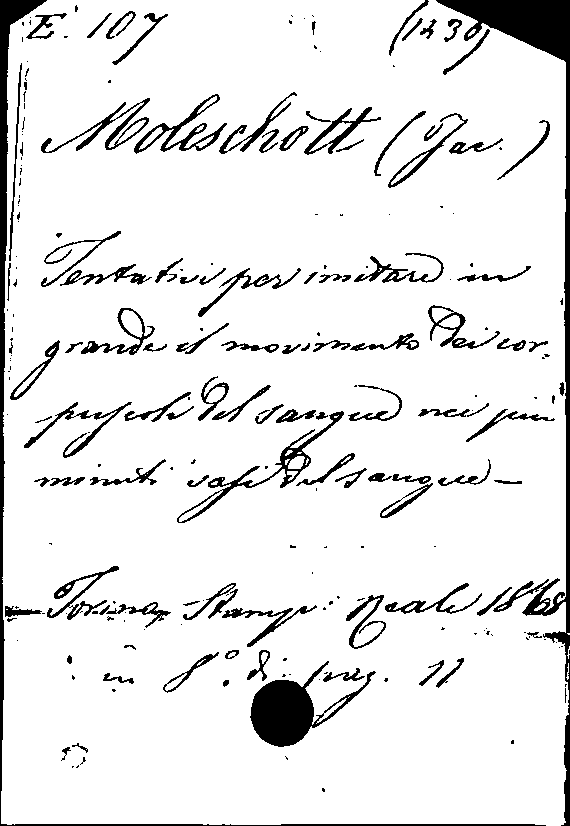 E. 107 (1230)
Moleschott (Jac.)
Tentativi per imitare in
grande il movimento dei cor-
puscoli del sangue nei più
minuti vasi del sangue —
Torino, Stamp: Reale 1868
in 8.° di pag. 11